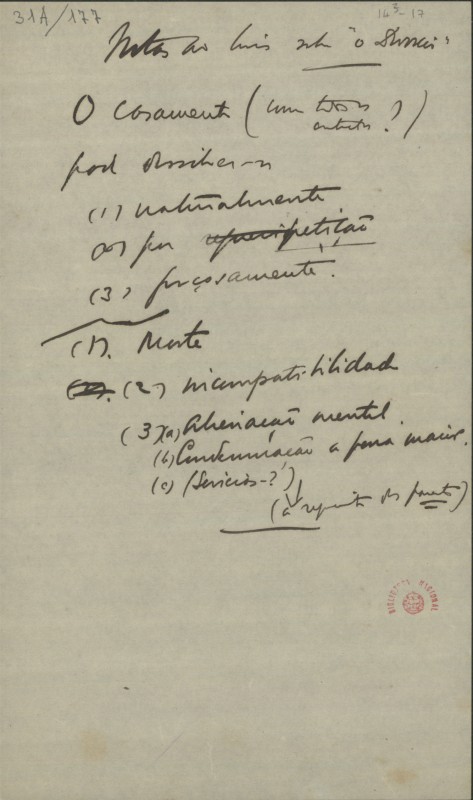 31A/177
14³-17
Notas ao livro sobre "o Divorcio"
O casamento (com todos os
contratos?)
pode dissolver-se
(1) naturalmente
(2) por petição
(3) forçosamente.
(1). Morte
(2) incompatibilidade
(3)(a) Alienação mental.
(b) Condemnação a pena maior.
(c) (Sevicias-?)
(a requerimento dos parentes)
BIBLIOTECA NACIONAL